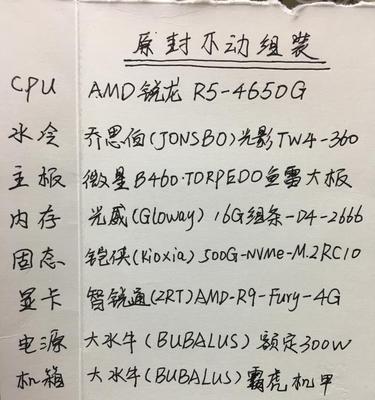 原封不动组装
CPU AMD锐龙 R5-4650G
水冷 乔思伯(JONSBO)光影TW4-360
主板 微星B460·TORPEDO鱼雷大板
内存 光威(Gloway) 16G组条-D4-2666
固态 铠侠(Kioxia)500G-NVMe-M.2RC10
显卡 智锐通(ZRT)AMD-R9-Fury-4G
电源 大水牛(BUBALUS)额定300W
机箱 大水牛(BUBALUS)霸虎机甲